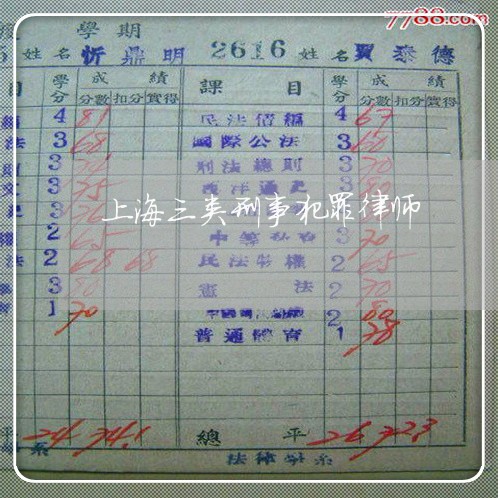 7788.com
學期
5 姓名 忻鼎明 2616 姓名 賈泰德
目 學分 成績 課目 學分 成績
分數 扣分 實得 分數 扣分 實得
4 81 民法債編 4 67
法 3 68 國際公法 3 60
3 刑法總則 3 70
3 75 西洋通史 3
上海三类刑事犯罪律师
2 65 3 70
法 2 68 68 民法物權 2 65
3 憲法 2 70
1 70 2 80
普通體育 1 78
平 24 74.1 總平 26 72.3
系 法律學系